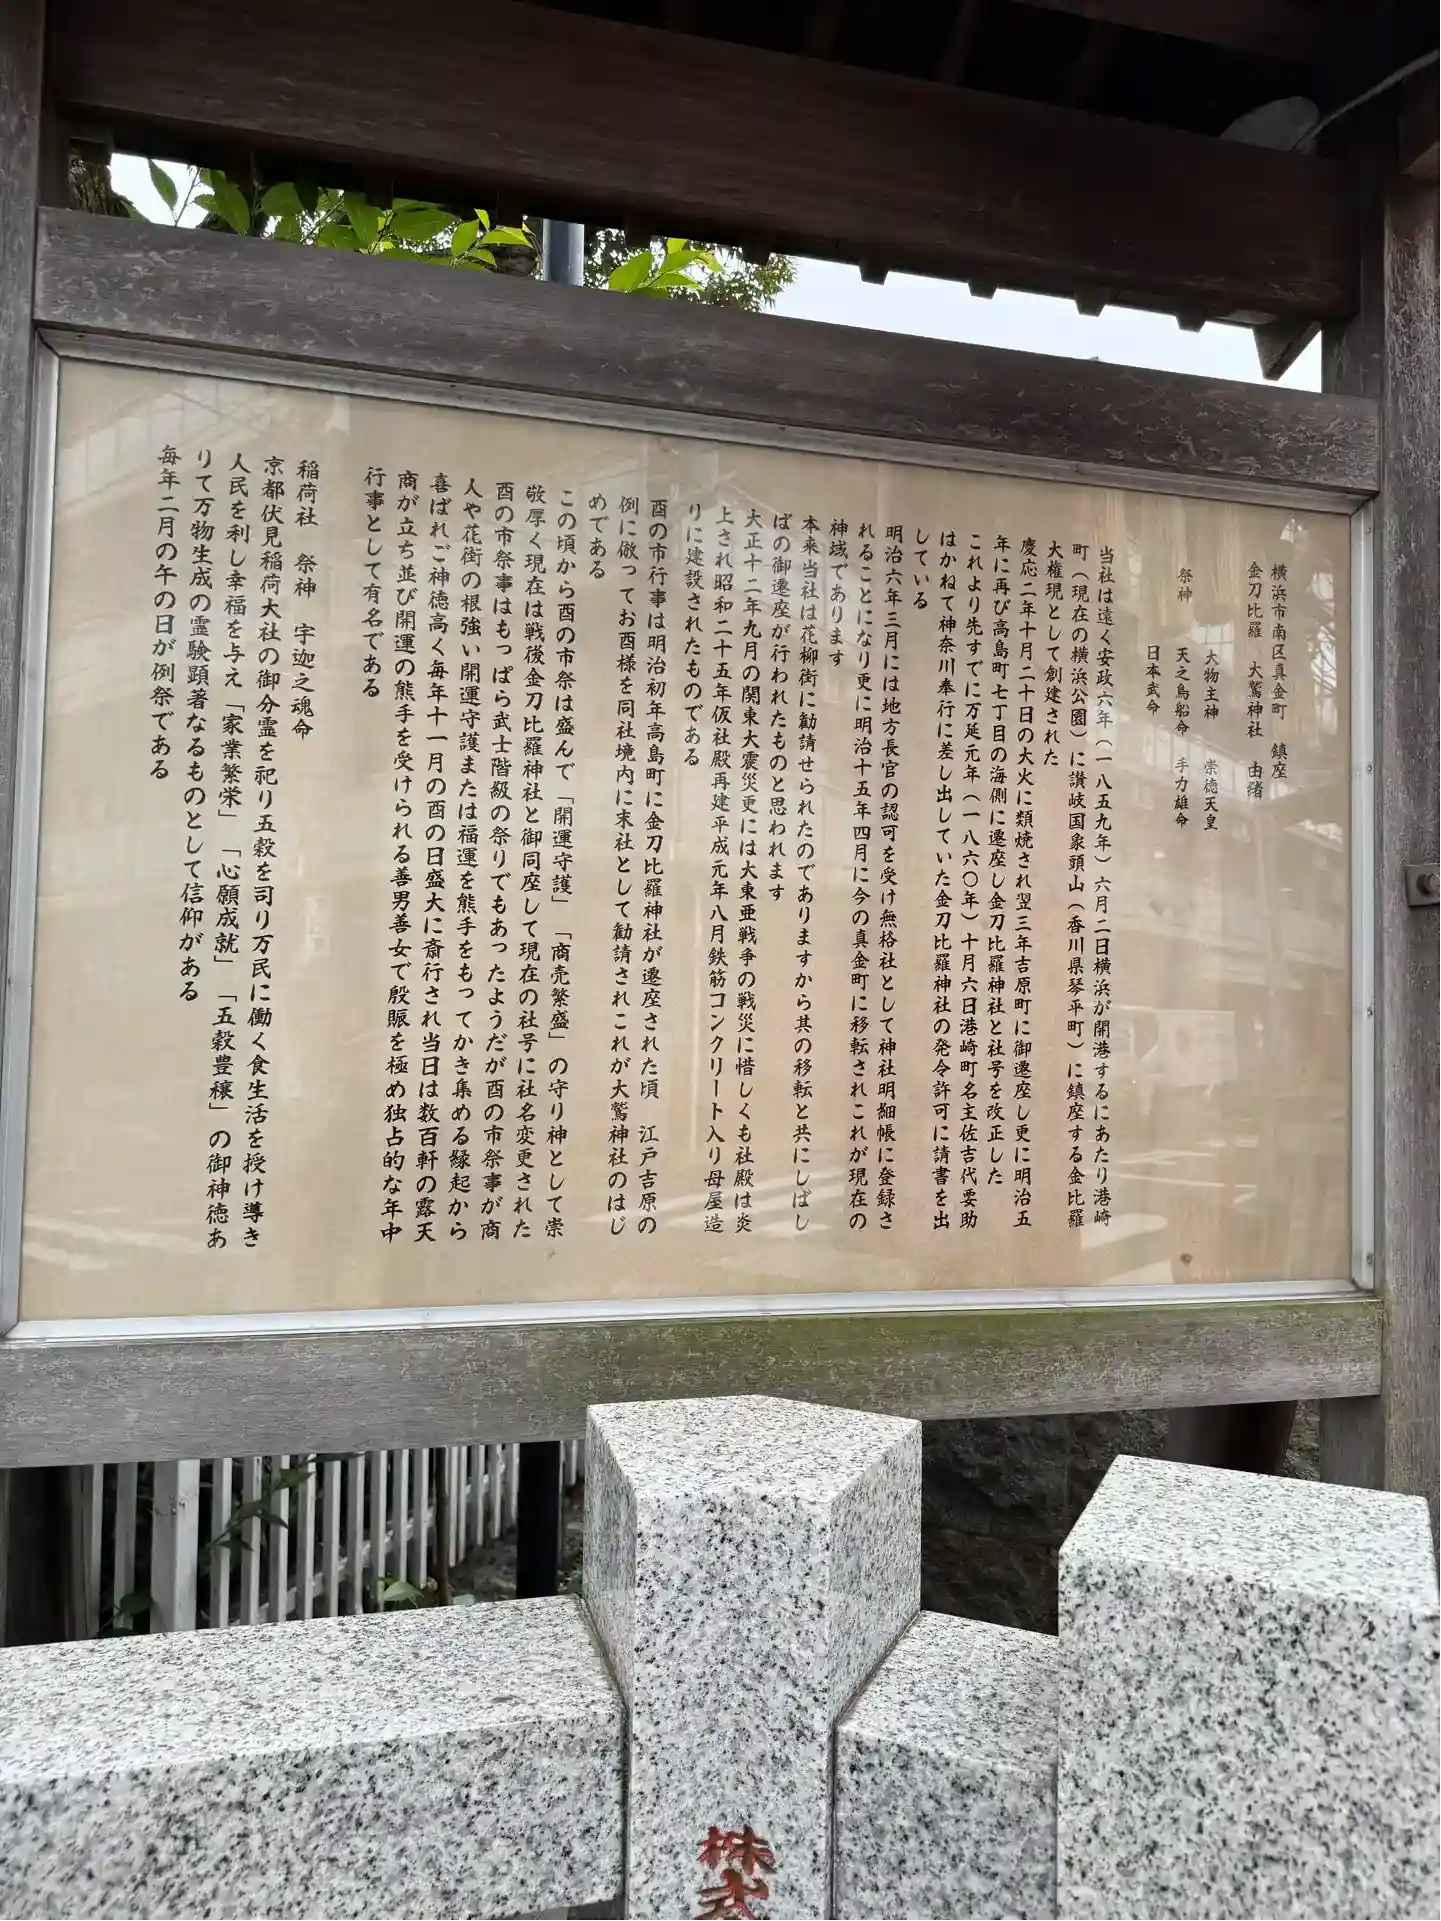 横浜市南区真金町　鎮座
金刀比羅　大鷲神社　由緒
大物主神　崇徳天皇
祭神　天之鳥船命　手力雄命
日本武命
当社は遠く安政六年（一八五九年）六月二日横浜が開港するにあたり港崎
町（現在の横浜公園）に讃岐国象頭山（香川県琴平町）に鎮座する金比羅
大権現として創建された
慶応二年十月二十日の大火に類焼され翌三年吉原町に御遷座し更に明治五
年に再び高島町七丁目の海側に遷座し金刀比羅神社と社号を改正した
これより先すでに万延元年（一八六〇年）十月六日港崎町名主佐吉代要助
はかねて神奈川奉行に差し出していた金刀比羅神社の発令許可に請書を出
している
明治六年三月には地方長官の認可を受け無格社として神社明細帳に登録さ
れることになり更に明治十五年四月に今の真金町に移転されこれが現在の
神域であります
本来当社は花柳街に勧請せられたのでありますから其の移転と共にしばし
ばの御遷座が行われたものと思われます
大正十二年九月の関東大震災更には大東亜戦争の戦災に惜しくも社殿は炎
上され昭和二十五年仮社殿再建平成元年八月鉄筋コンクリート入り母屋造
りに建設されたものである
酉の市行事は明治初年高島町に金刀比羅神社が遷座された頃　江戸吉原の
例に倣ってお酉様を同社境内に末社として勧請されこれが大鷲神社のはじ
めである
この頃から酉の市祭は盛んで「開運守護」「商売繁盛」の守り神として崇
敬厚く現在は戦後金刀比羅神社と御同座して現在の社号に社名変更された
酉の市祭事はもっぱら武士階級の祭りでもあったようだが酉の市祭事が商
人や花街の根強い開運守護または福運を熊手をもってかき集める縁起から
喜ばれご神徳高く毎年十一月の酉の日盛大に斎行され当日は数百軒の露天
商が立ち並び開運の熊手を受けられる善男善女で殷賑を極め独占的な年中
行事として有名である
稲荷社　祭神　宇迦之魂命
京都伏見稲荷大社の御分霊を祀り五穀を司り万民に働く食生活を授け導き
人民を利し幸福を与え「家業繁栄」「心願成就」「五穀豊穣」の御神徳あ
りて万物生成の霊験顕著なるものとして信仰がある
毎年二月の午の日が例祭である
株式